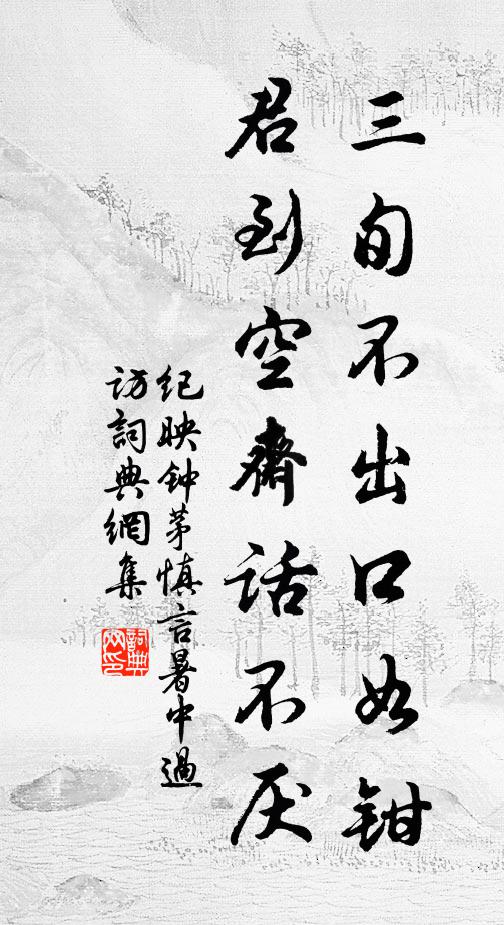 三旬不出口如鉗
君到空齋话不厌
纪映钟茅慎言暑中過
访詞典網集
詞典
网印